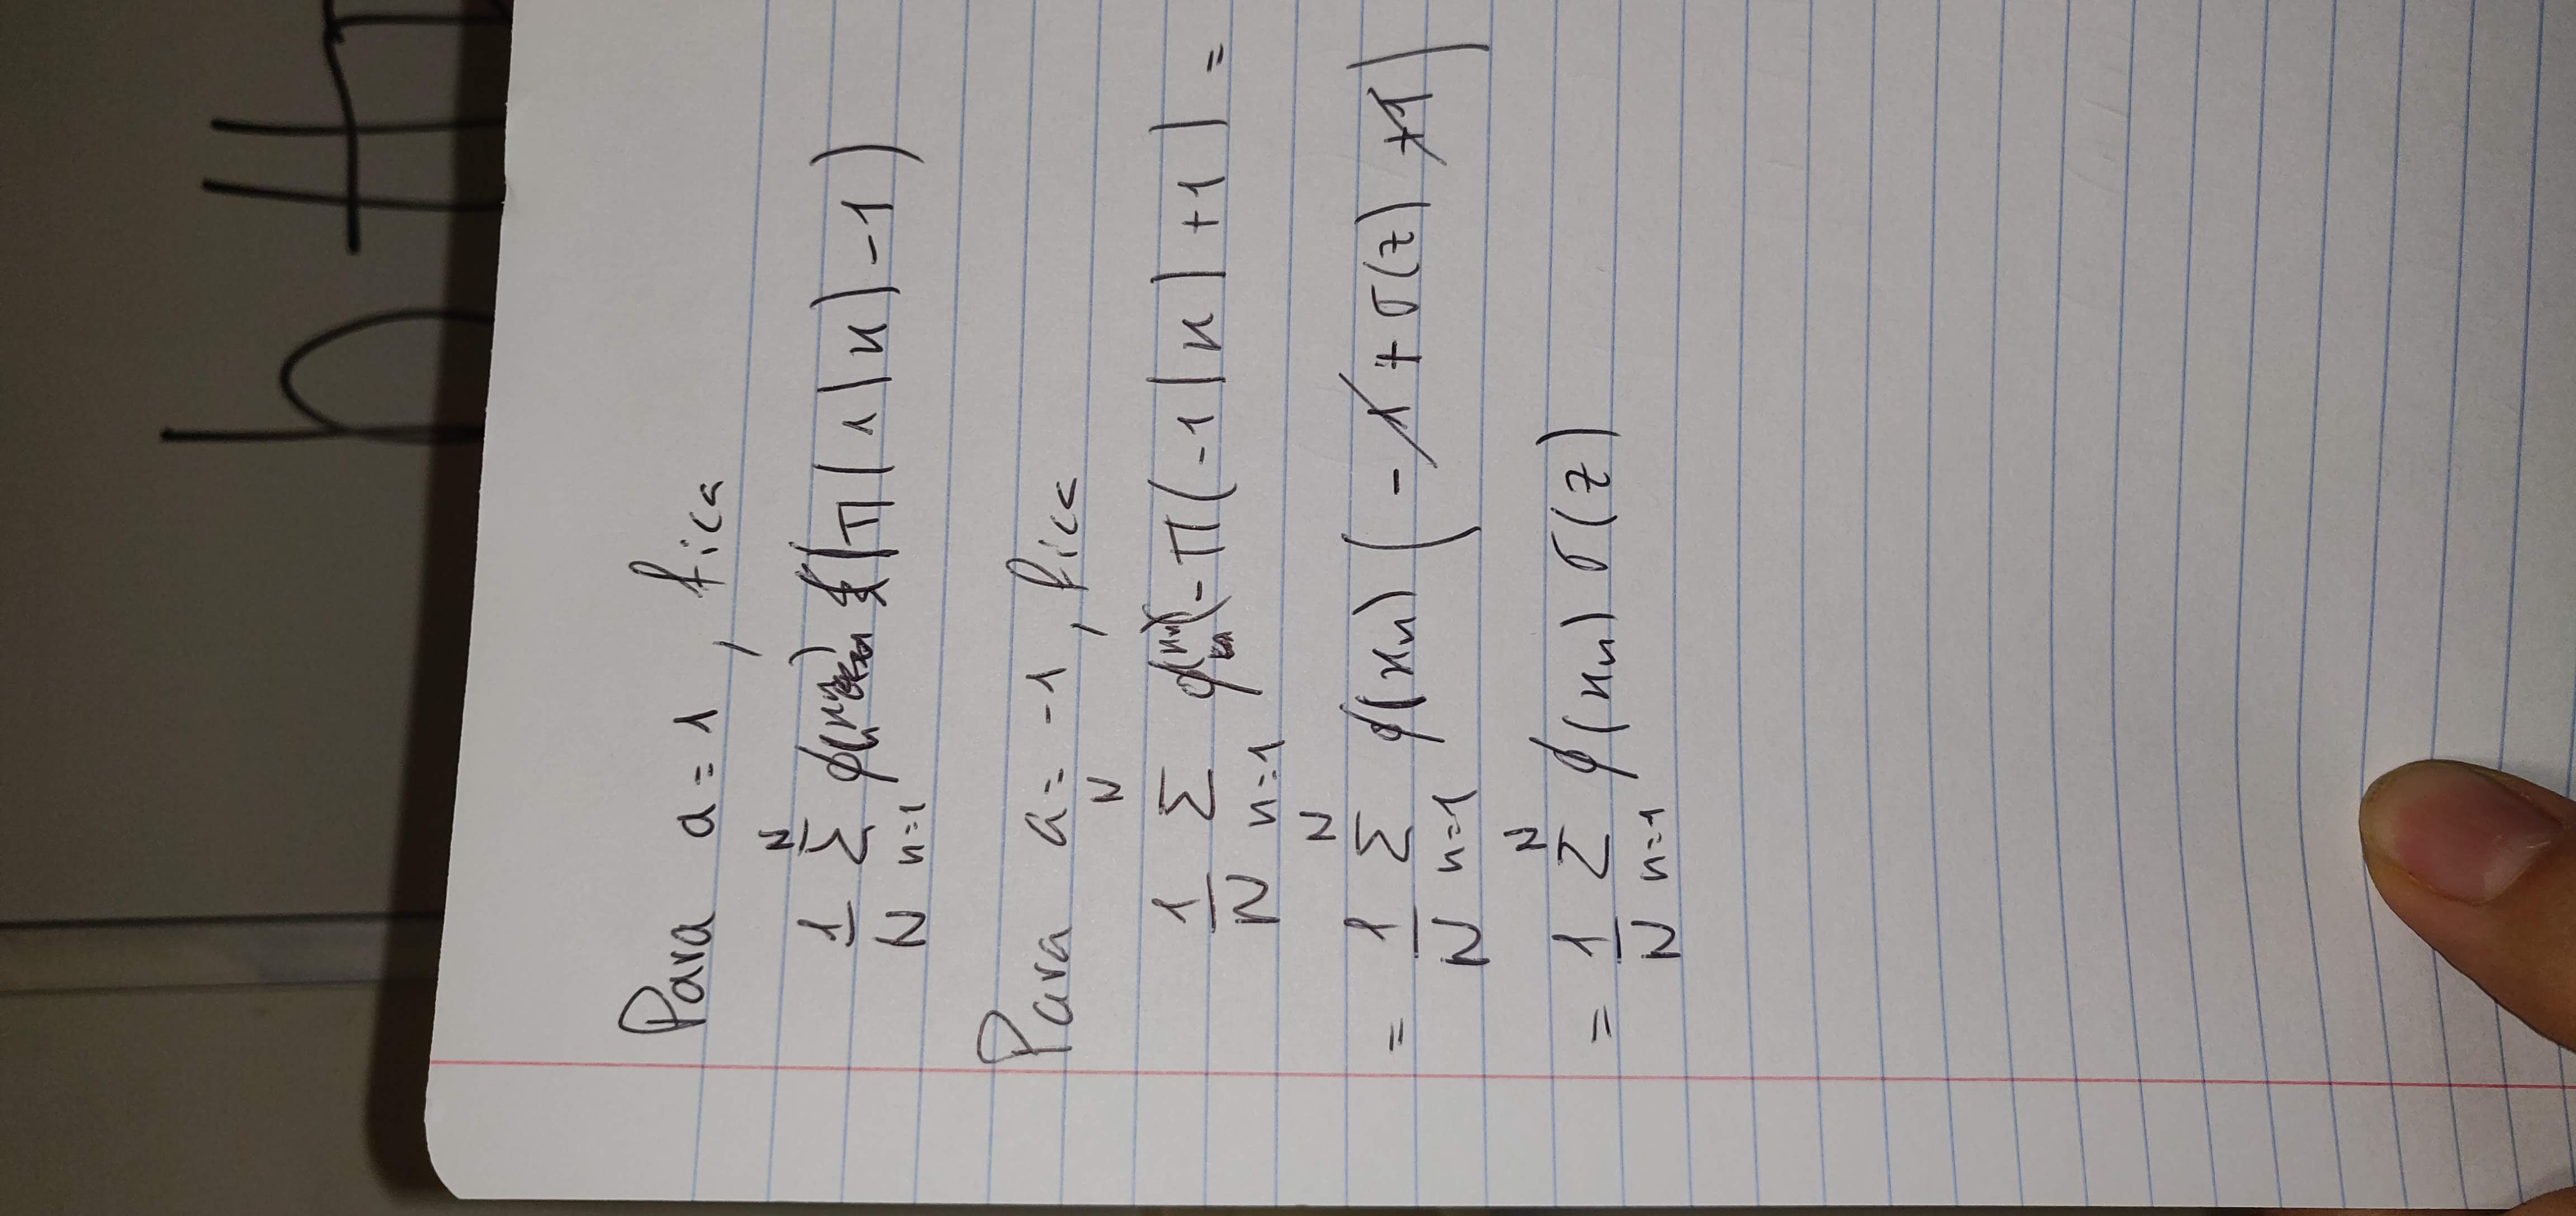 htt
Para a = 1, fica
1/N Σ_{n=1}^{N} ϕ(xn) (π(1|x) - 1)
Para a = -1, fica
1/N Σ_{n=1}^{N} ϕ(xn)(-π(-1|x) + 1) =
= 1/N Σ_{n=1}^{N} ϕ(xn) (-1 + σ(z) + 1)
= 1/N Σ_{n=1}^{N} ϕ(xn) σ(z)